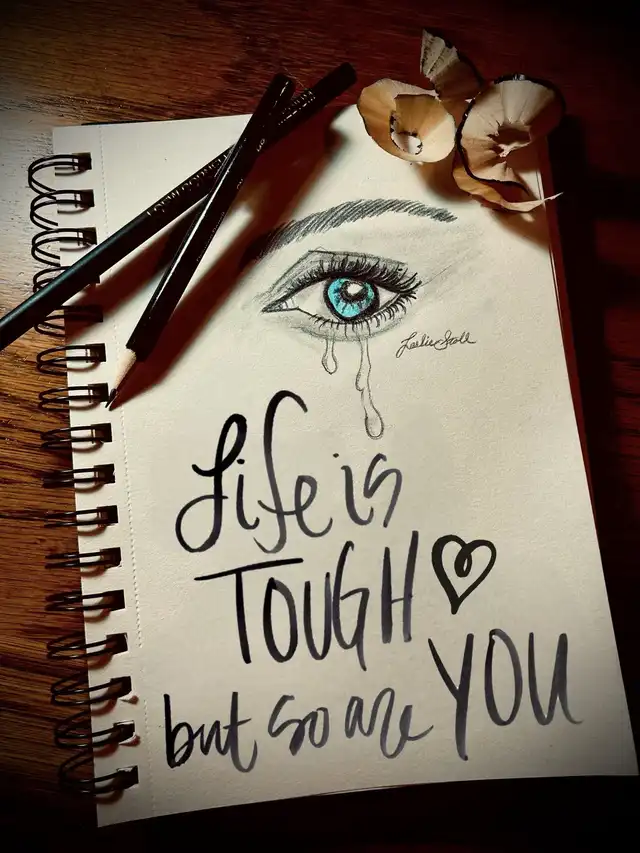 Leslie Scoll
Life is
TOUGH
but so are YOU